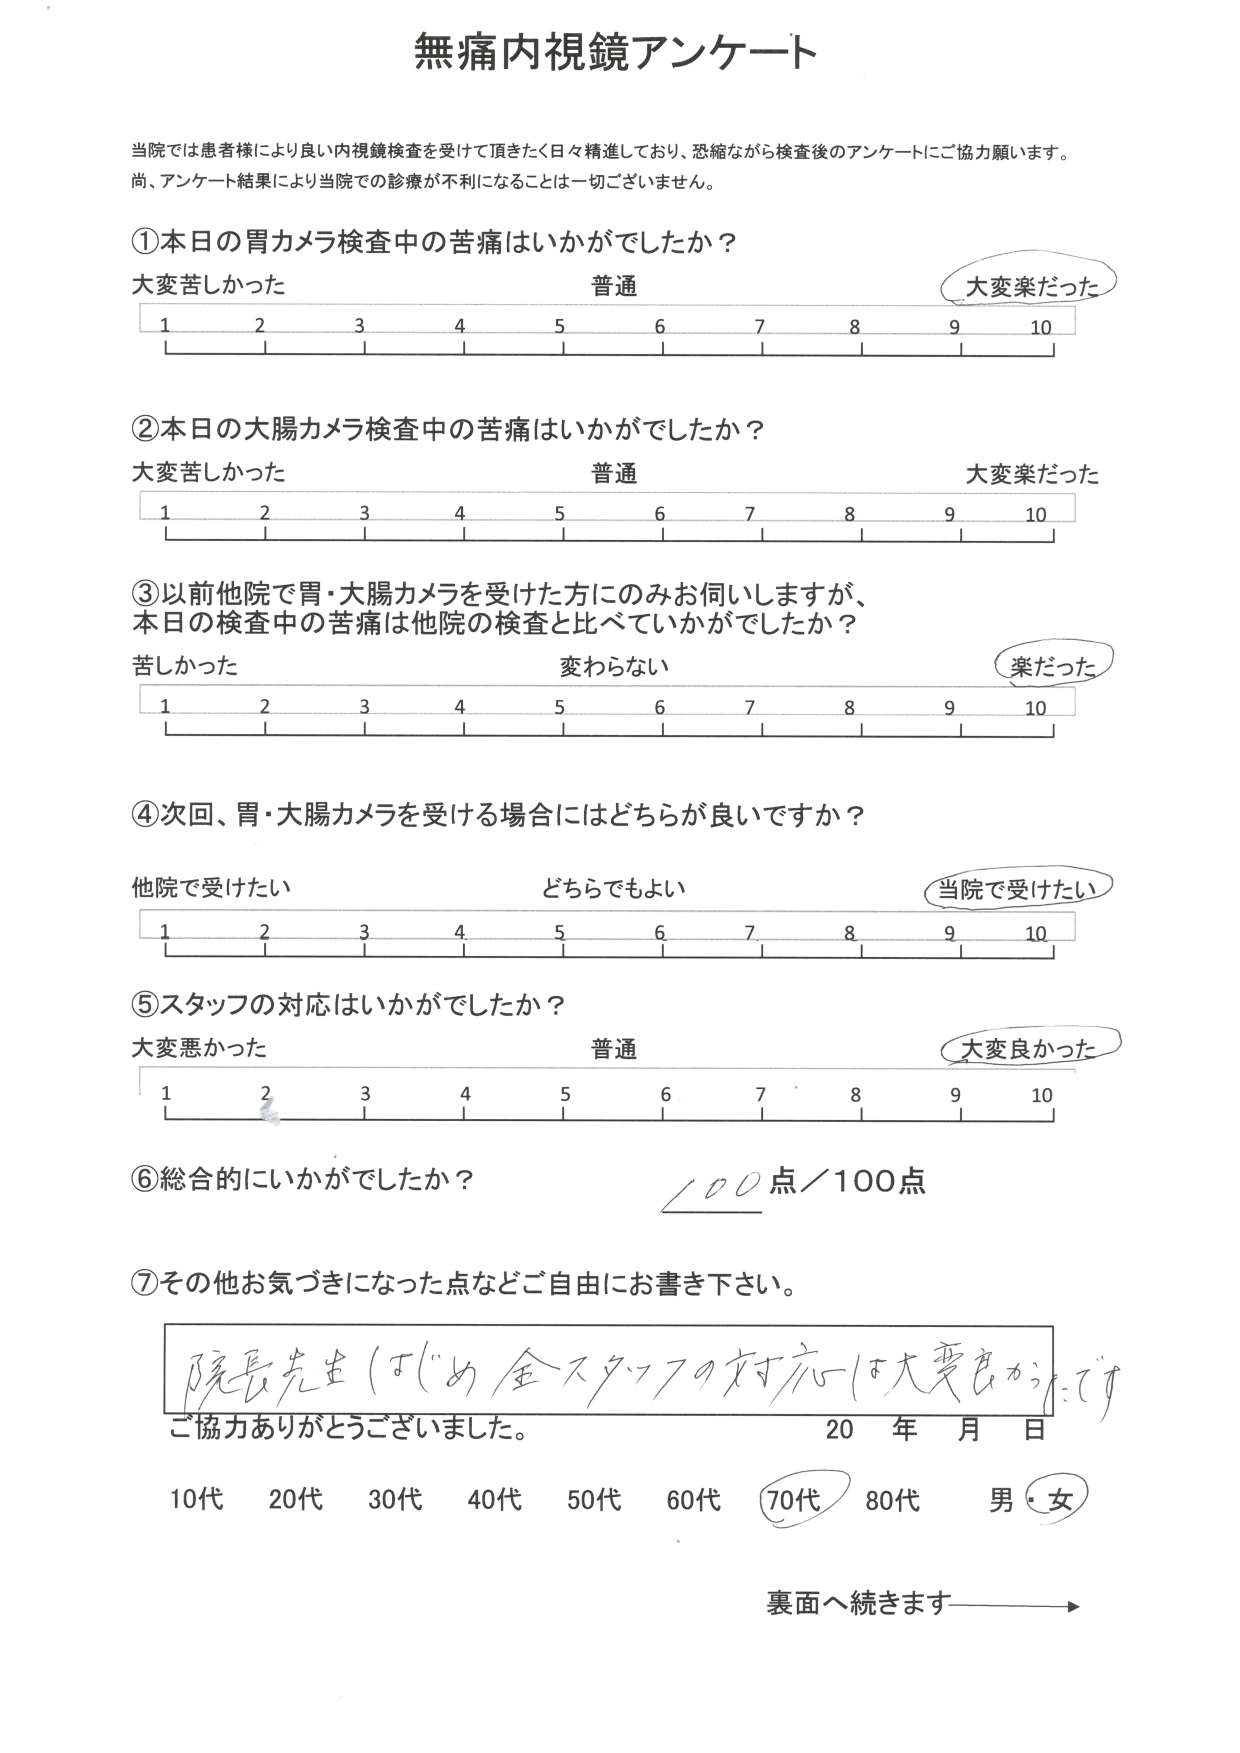 無痛内視鏡アンケート
当院では患者様により良い内視鏡検査を受けて頂きたく日々精進しており、恐縮ながら検査後のアンケートにご協力願います。
尚、アンケート結果により当院での診療が不利になることは一切ございません。
①本日の胃カメラ検査中の苦痛はいかがでしたか？
大変苦しかった 普通 大変楽だった
1 2 3 4 5 6 7 8 9 10
②本日の大腸カメラ検査中の苦痛はいかがでしたか？
大変苦しかった 普通 大変楽だった
1 2 3 4 5 6 7 8 9 10
③以前他院で胃・大腸カメラを受けた方にのみお伺いしますが、
本日の検査中の苦痛は他院の検査と比べていかがでしたか？
苦しかった 変わらない 楽だった
1 2 3 4 5 6 7 8 9 10
④次回、胃・大腸カメラを受ける場合にはどちらが良いですか？
他院で受けたい どちらでもよい 当院で受けたい
1 2 3 4 5 6 7 8 9 10
⑤スタッフの対応はいかがでしたか？
大変悪かった 普通 大変良かった
1 2 3 4 5 6 7 8 9 10
⑥総合的にいかがでしたか？ 100点／100点
⑦その他お気づきになった点などご自由にお書き下さい。
院長先生はじめ全スタッフの対応は大変良かったです
ご協力ありがとうございました。 20 年 月 日
10代 20代 30代 40代 50代 60代 70代 80代 男・女
裏面へ続きます